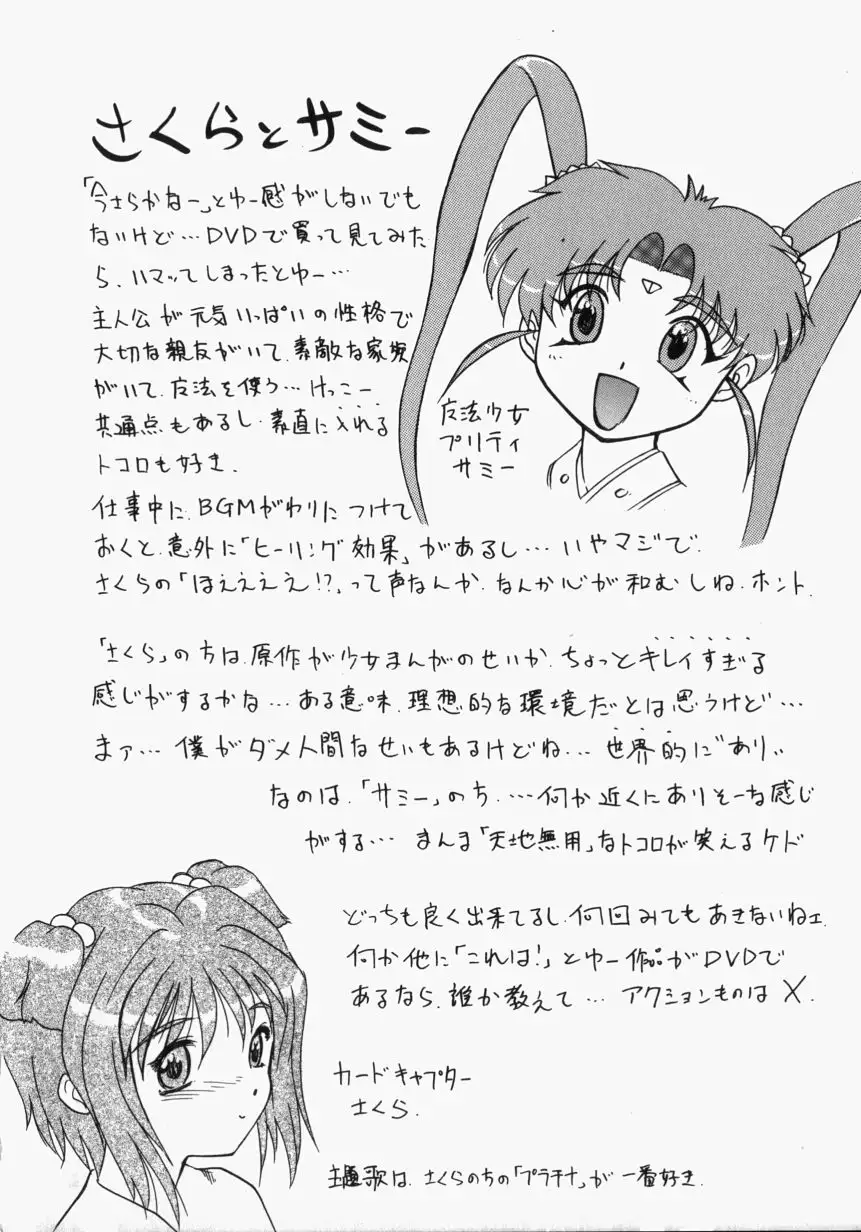 さくらとサミー
「今さらかなー」とゆー感がしないでも
ないけど…DVDで買って見てみた
ら、ハマッてしまったとゆー…
主人公が元気いっぱいの性格で
大切な親友がいて、素敵な家族
がいて、友法を使う…けっこー
共通点もあるし、素直に入れる
トコロも好き.
仕事中に、BGMがわりにつけて
おくと、意外に「ヒーリング効果」があるし…いやマジで.
さくらの「ほええええ!?」って声なんか、なんか心が和むしね、ホント.
魔法少女
プリティ
サミー
「さくら」の方は、原作が少女まんがのせいか、ちょっとキレイすぎる
感じがするかな…ある意味、理想的な環境だとは思うけど…
まァ…僕がダメ人間なせいもあるけどね…世界的に"あり"
なのは、「サミー」のち….何か近くにありそーな感じ
がする… まんま「天地無用」なトコロが笑えるケド
どっちも良く出来てるし、何回みてもあきないねェ.
何か他に「これは!」とゆー作品がDVDで
あるなら、誰か教えて… アクションものはX.
カードキャプター
さくら.
主題歌は、さくらのちの「プラチナ」が一番好き.